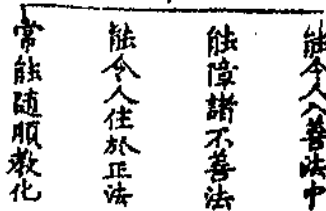 能令人入善法中
能障諸不善法
能令人住於正法
常能隨順教化